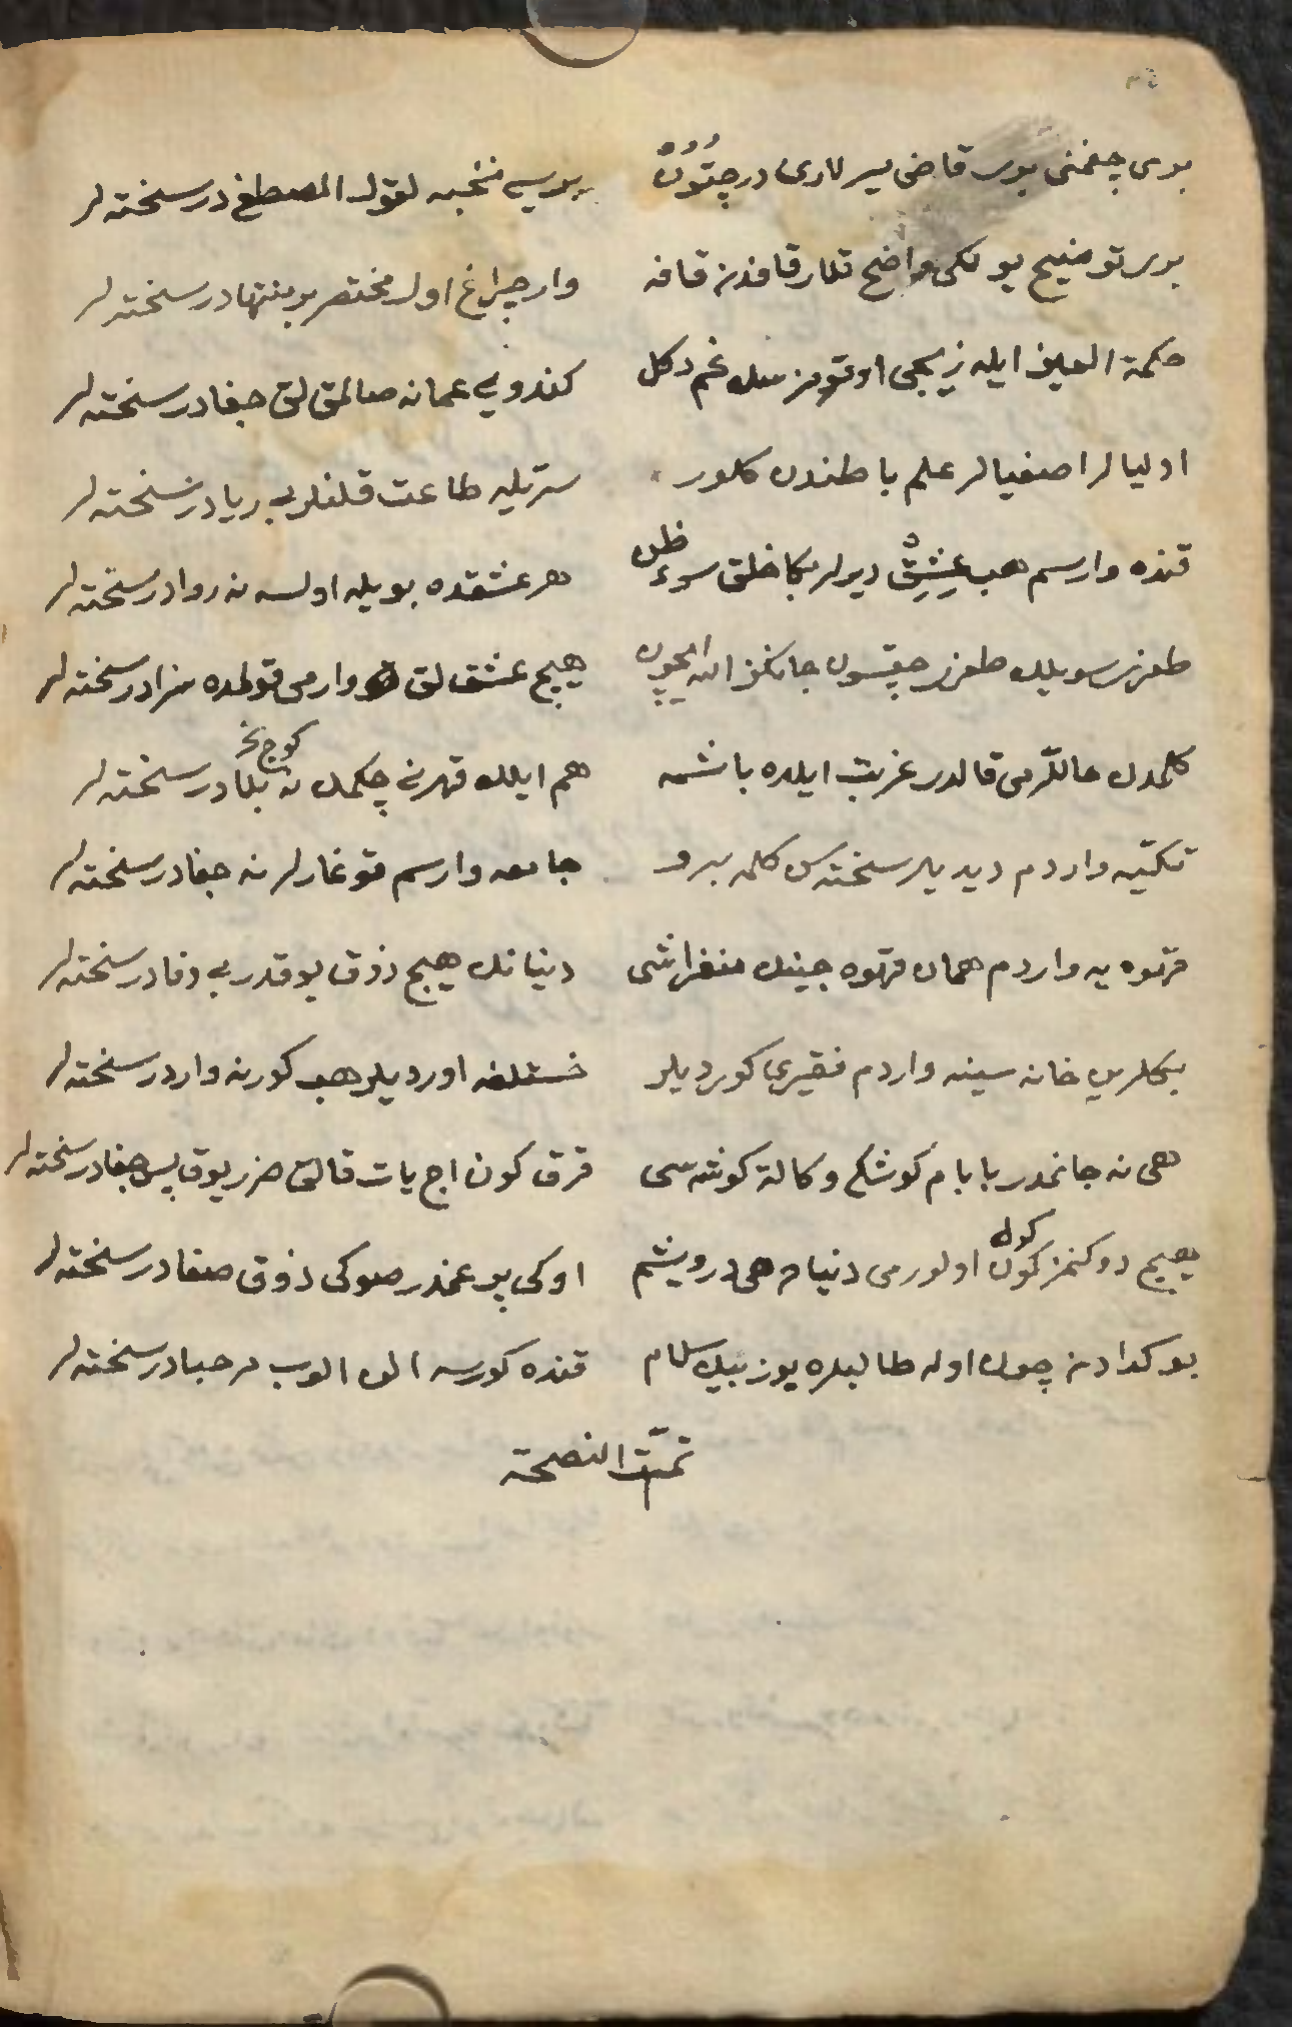 بری چغمنی بری قاضی میر لاری در چتون بریسی نخبه لقول المصطفی در سخته لر
بری توضیح یولکی واضح قلار قافدن قافه وار چراغ اول مختصر بو منتهادر سخته لر
حکمة العین ایله زیجی اوقومزسك غم دکل کندویی عمانه صالمق لق جفادر سخته لر
اولیالر اصفیالر علم باطندن کلور سرّیله طاعت قلنلر بی ریادر سخته لر
قنده وارسم هب عشق دیرلر بکا خلق سوء ظن هر عشقده بویله اولسه نه روادر سخته لر
طعنز سویلك طعنز چقسون جانکز الله ایچون هیچ عشق لق وارمی قولده سزادر سخته لر
کلمدن حاللرمی قالدر غربت ایلده باشمه هم ایللك قهرنی چکمك نه کوج بلادر سخته لر
تکیّه واردم دیدیلر سخته سن کلمه برو جامعه وارسم قوغارلر نه جفادر سخته لر
قهوه یه واردم همان قهوه جینك منغراشی دنیانك هیچ ذوق یوقدر بی وفادر سخته لر
بکلرین خانه سینه واردم فقیری کوردیلر خستلغه اوردیلر هب کورنه واردر سخته لر
هی نه جانمدر بابام کوشکم وکالة کوشه سی قرق کون اج یات قالق ضرر یوق پس جفادر سخته لر
هیچ دوکنمز کون کول اولورمی دنیاده هی درویشم اوکی بو غمدر صوکی ذوق صفادر سخته لر
بو کدادن چون اوله طالبلره یوز بیك سلام قنده کورسه الن الوب مرحبادر سخته لر
تمّت النصحة